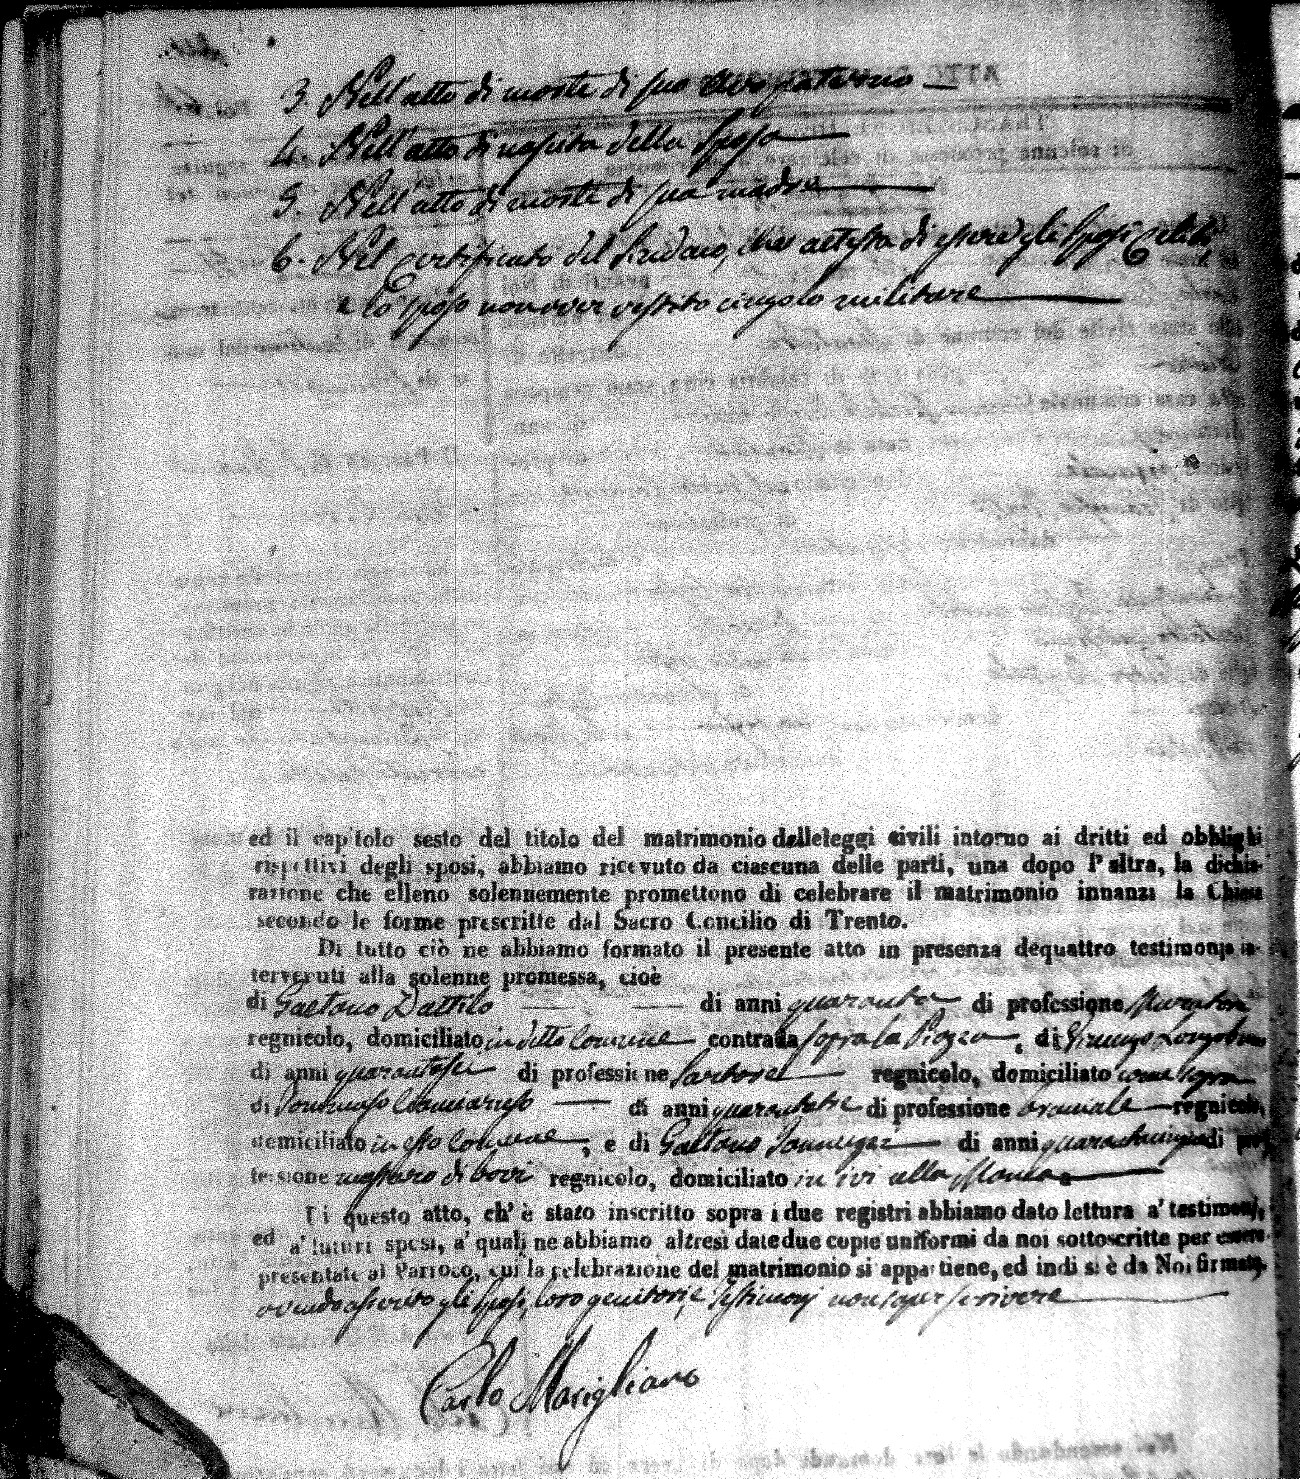 3. Nell'atto di morte di suo avo paterno
4. Nell'atto di nascita della Sposa
5. Nell'atto di morte di sua madre
6. Nel Certificato del Sindaco, che attesta di essere gli Sposi Celibi,
e lo sposo non aver vestito cingolo militare
ed il capitolo sesto del titolo del matrimonio delleleggi civili intorno ai dritti ed obblighi
rispettivi degli sposi, abbiamo ricevuto da ciascuna delle parti, una dopo l'altra, la dichia-
razione che elleno solennemente promettono di celebrare il matrimonio innanzi la Chiesa
secondo le forme prescritte dal Sacro Concilio di Trento.
Di tutto ciò ne abbiamo formato il presente atto in presenza dequattro testimonja in-
tervenuti alla solenne promessa, cioè
di Gaetano Dattilo di anni quaranta di professione
regnicolo, domiciliato in detto Comune contrada sopra la Piazza, di
di anni quarantasei di professione Sartore regnicolo, domiciliato come sopra
di Tommaso di anni quarantatre di professione bracciale regnicolo,
domiciliato in esso Comune, e di Gaetano di anni quarantacinque di pro-
fessione di bovi regnicolo, domiciliato in ivi alla
Di questo atto, ch'è stato inscritto sopra i due registri abbiamo dato lettura a' testimonj,
ed a' futuri sposi, a' quali ne abbiamo altresì date due copie uniformi da noi sottoscritte per essere
presentate al Parroco, cui la celebrazione del matrimonio si appartiene, ed indi si è da Noi firmato,
avendo asserito gli Sposi, loro genitori, e Testimonj non saper scrivere
Carlo Marigliano